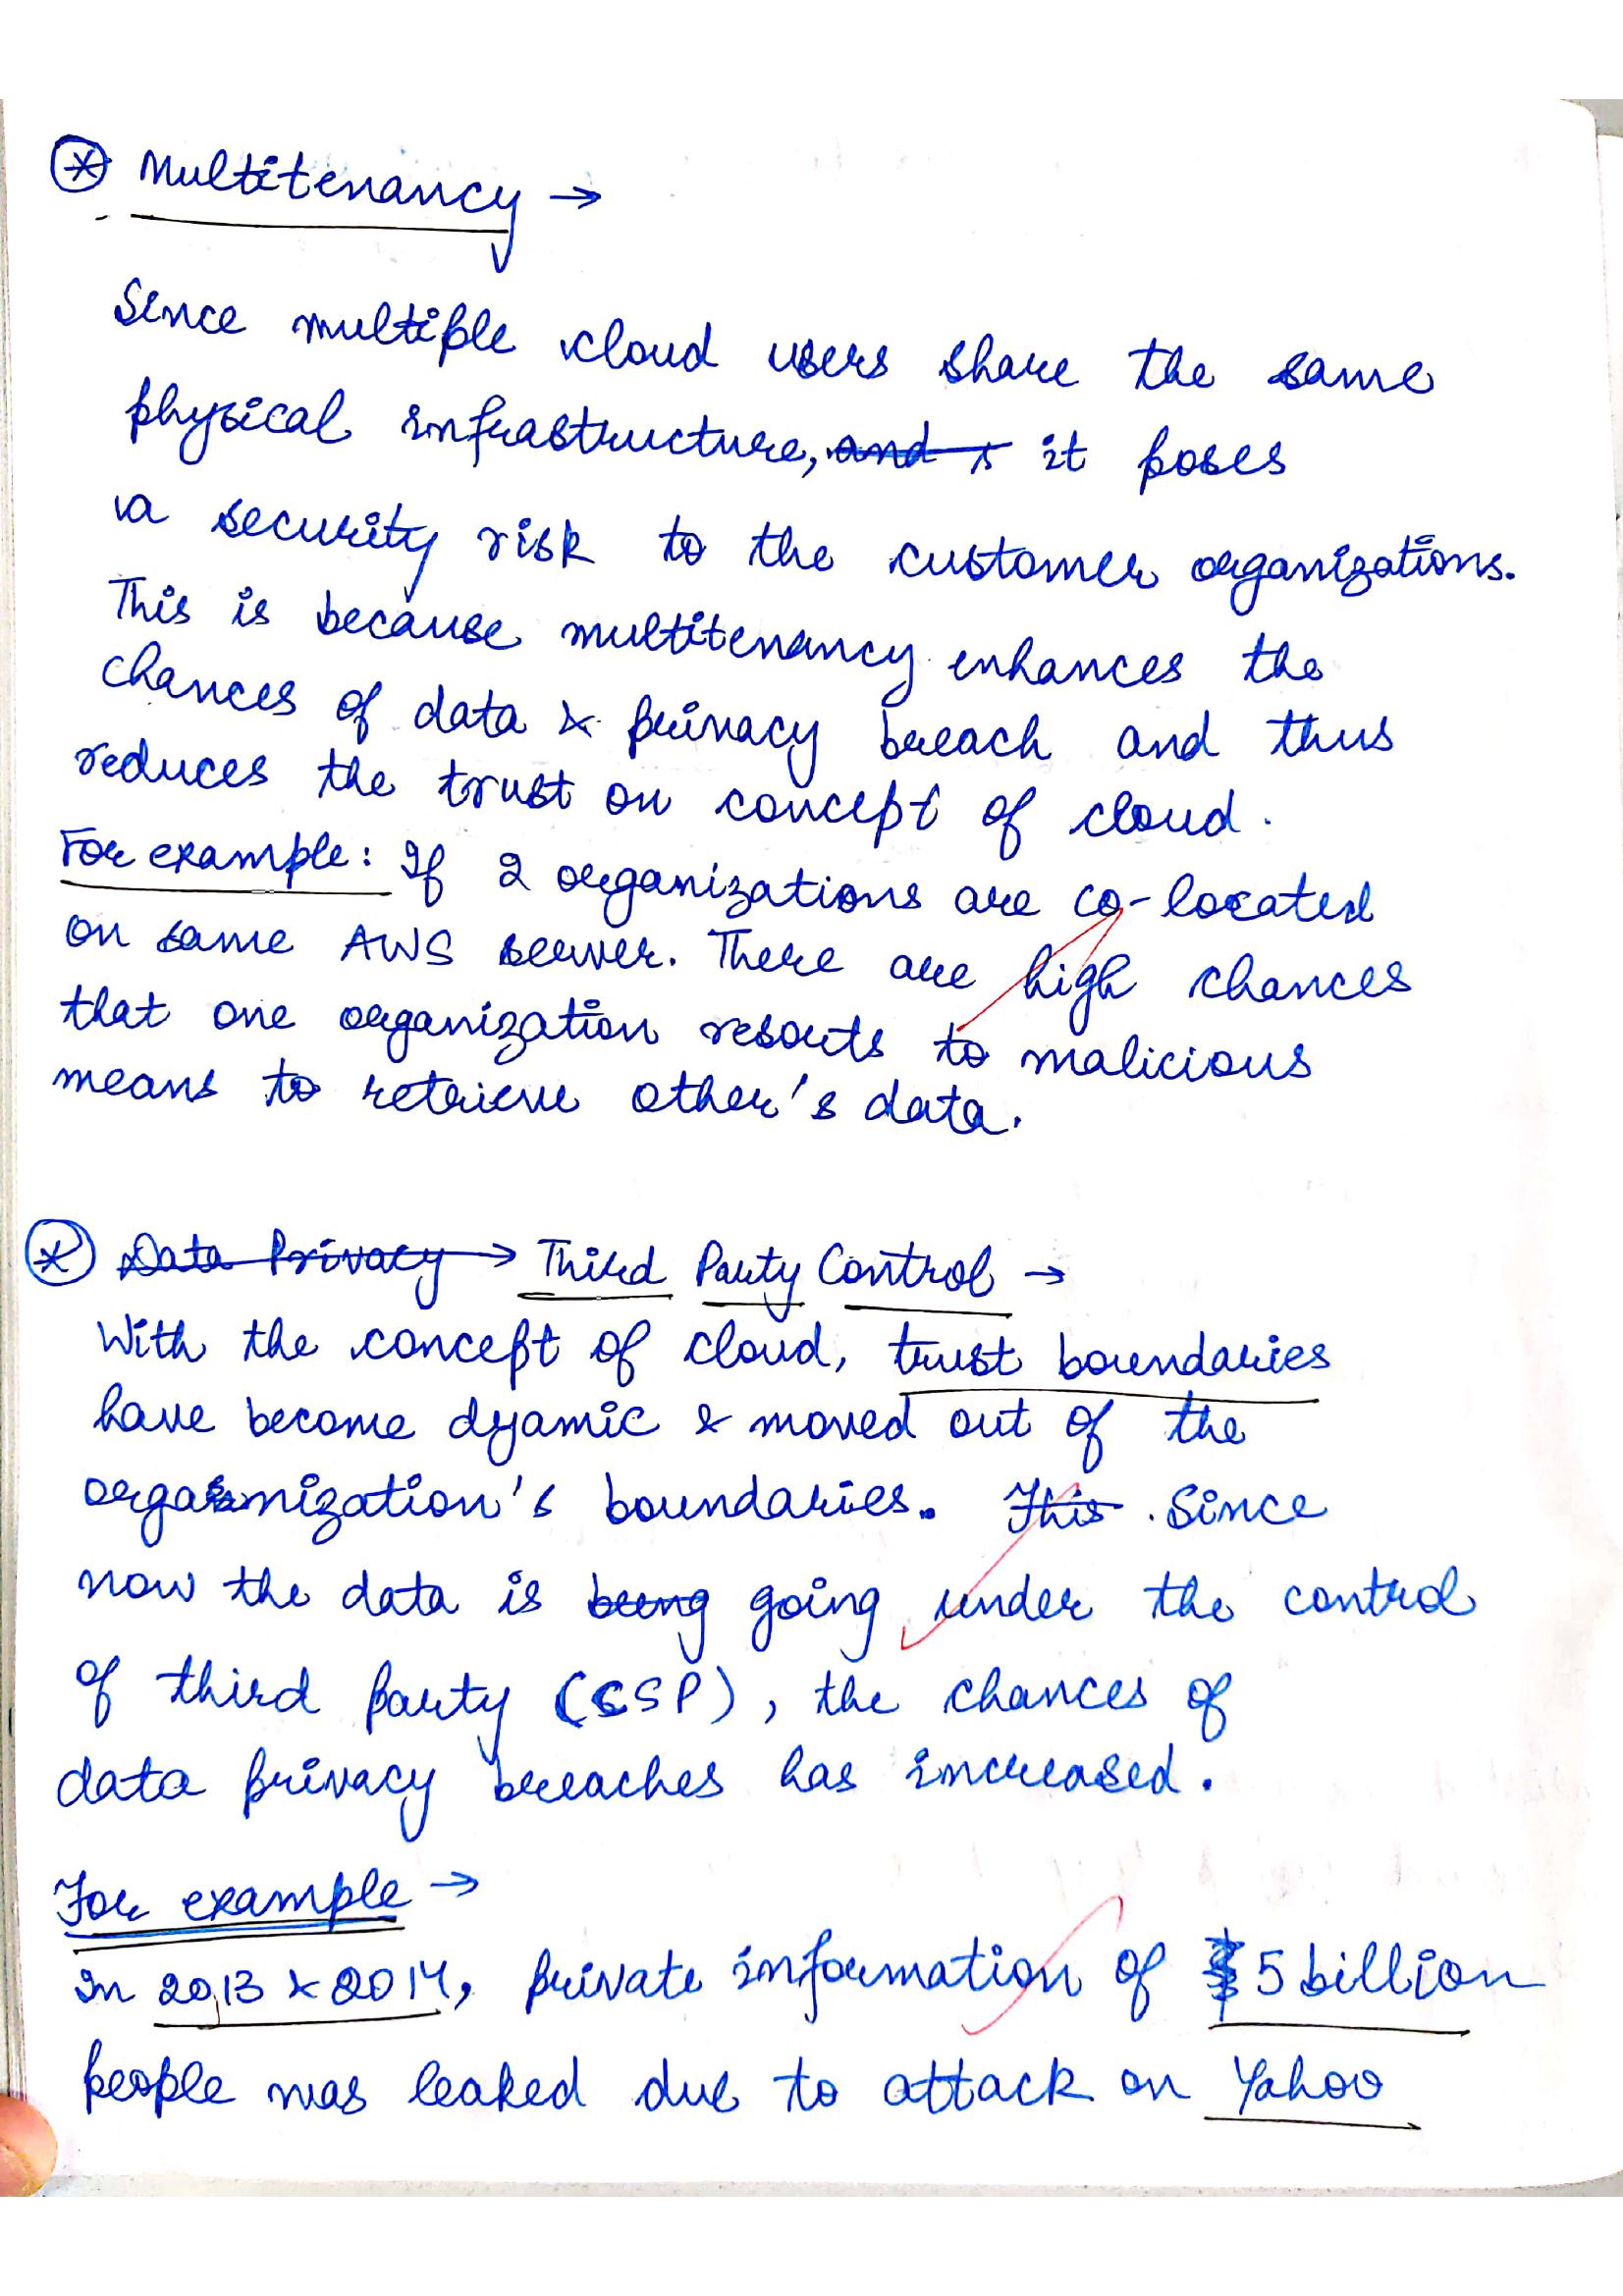 ⊛ Multitenancy →
Since multiple cloud users share the same
physical infrastructure, and s it poses
a security risk to the customer organizations.
This is because multitenancy enhances the
chances of data & privacy breach and thus
reduces the trust on concept of cloud.
For example: If 2 organizations are co-located
on same AWS server. There are high chances
that one organization resorts to malicious
means to retrieve other's data.
⊛ Data Privacy → Third Party Control →
With the concept of cloud, trust boundaries
have become dyamic & moved out of the
organization's boundaries. This. Since
now the data is being going under the control
of third party (CSP), the chances of
data privacy breaches has increased.
For example →
In 2013 & 2014, private information of 5 billion
people was leaked due to attack on Yahoo